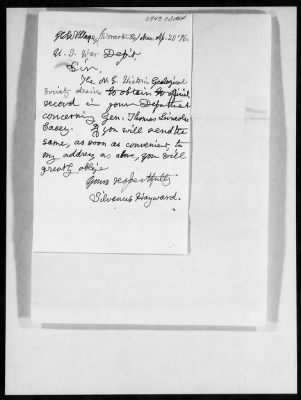 Globe Village, Worcester Co., Mass. Ap. 28 '96.
U. S. War Dep't.
Sir,
The N. E. Historic Geological
Society desires to obtain official
record in your Department
concerning Gen. Thomas Lincoln
Casey. If you will send the
same, as soon as convenient to
my address as above, you will
greatly oblige
Yours respectfully
Silvanus Hayward.